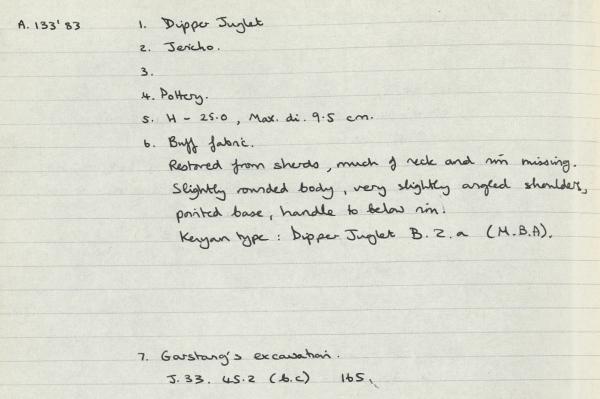 A. 133'83
1. Dipper Juglet
2. Jericho.
3.
4. Pottery.
5. H - 25.0, Max. di. 9.5 cm.
6. Buff fabric.
Restored from sherds, much of neck and rim missing.
Slightly rounded body, very slightly angled shoulder,
pointed base, handle to below rim.
Kenyan type: Dipper Juglet B.2.a (M.B.A).
7. Garstang's excavation.
J. 33. 45.2 (b.c) 165.